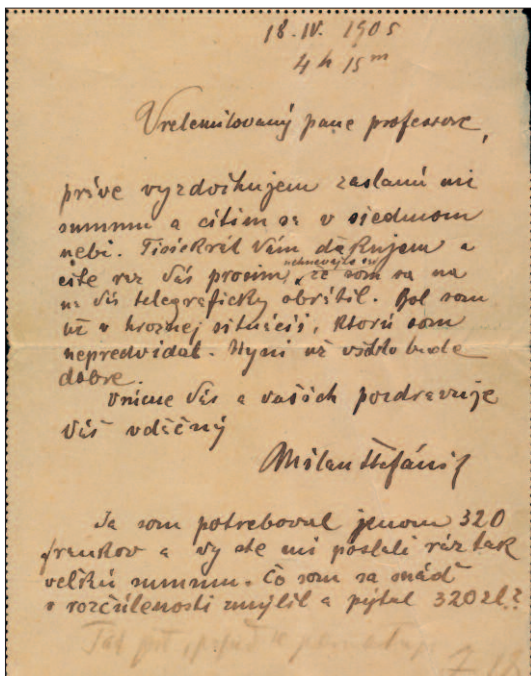 18.IV. 1905
4 h 15 m
Vrelemilovaný pane professore,
práve vyzdvihujem zaslanú mi
summu a cítim sa v siedmom
nebi. Tisíckrát Vám ďakujem a
ešte raz Vás prosím, nehnevajte sa, že som sa na
na Vás telegraficky obrátil. Bol som
už v hroznej situácii, ktorú som
nepredvídal. Nyní už všetko bude
dobre.
Vrúcne Vás a vašich pozdravuje
Váš vďačný
Milan Štefánik
Ja som potreboval jenom 320
frankov a vy ste mi poslali ráz tak
velikú summu. Čo som sa snáď
v rozčúlenosti zmýlil a pýtal 320 zl.?